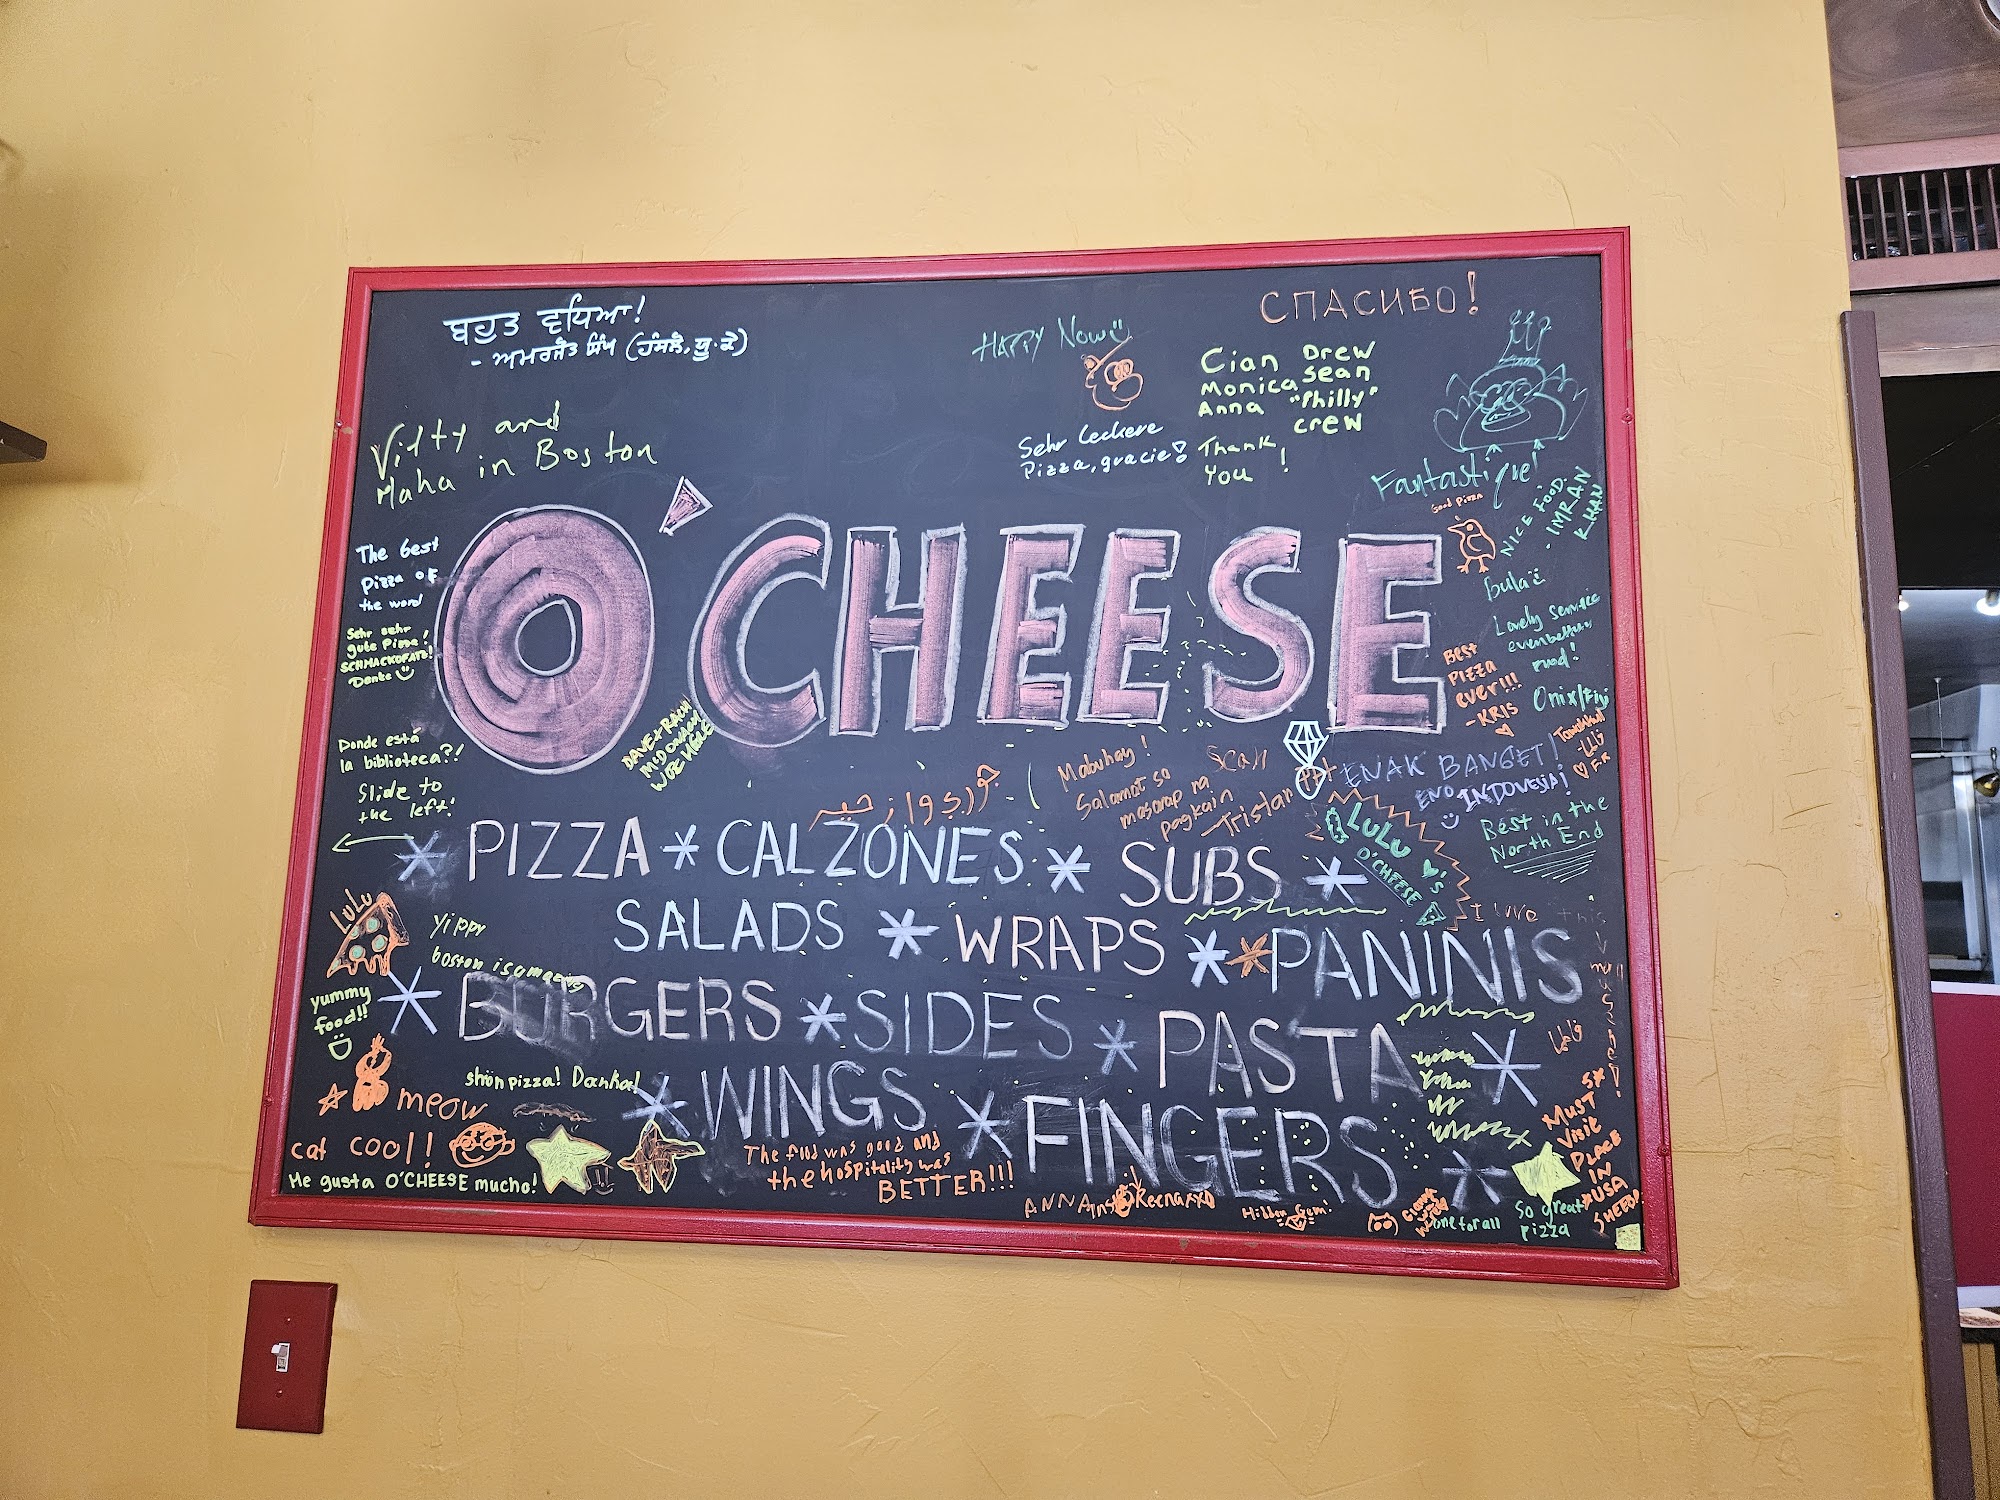 ਬਹੁਤ ਵਧਿਆ!
- ਅਮਰਜੀਤ ਸਿੰਘ (ਹੰਸਲੋ, ਯੂ.ਕੇ)
СПАСИБО!
HAPPY Now
Cian Drew
Monica Sean
Anna "Philly"
crew
Thank
You!
Sehr leckere
Pizza, gracie!
and
Maha in Boston
Fantastique!
Good Pizza
NICE FOOD.
- IMRAN
KHAN
O'CHEESE
The best
pizza of
the word
Sehr sehr
gute Pizza!
SCHMACKOFATZ!
Danke
bula
Lovely Service
even better
food!
Onix/Fiji
BEST
PIZZA
ever!!!
- KRIS
DAVE + RACH
McDONALD
WOZ HERE
Donde está
la biblioteca?!
Slide to
the left!
Mabuhay!
Salamat so
masarap na
pagkain
Sean
Tristan
ENAK BANGET!
ENO INDONESIA!
Best in the
North End
LuLu
♥'s
O'CHEESE
PIZZA * CALZONES * SUBS *
SALADS * WRAPS * * PANINIS
* BURGERS * SIDES * PASTA *
* WINGS * FINGERS *
LuLu
yippy
boston is amazing
yummy
food!!
I love this
meow
shön pizza! Danke!
cat cool!
Me gusta O'CHEESE mucho!
The food was good and
the hospitality was
BETTER!!!
ANNA
Hidden Gem!
one for all
So great
pizza
5*
MUST
VISIT
PLACE
IN
USA